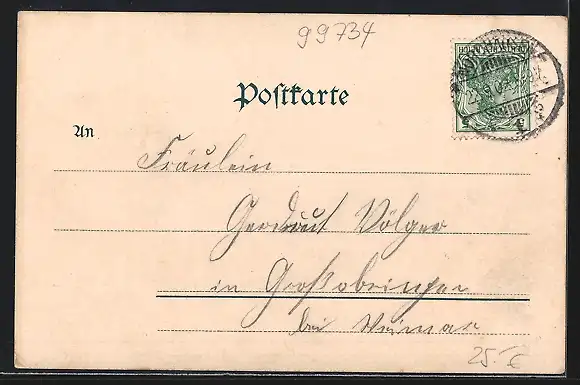 99734
Postkarte
An
Fräulein
Gerdraut Völger
in Großobringen
bei Weimar
25.- €